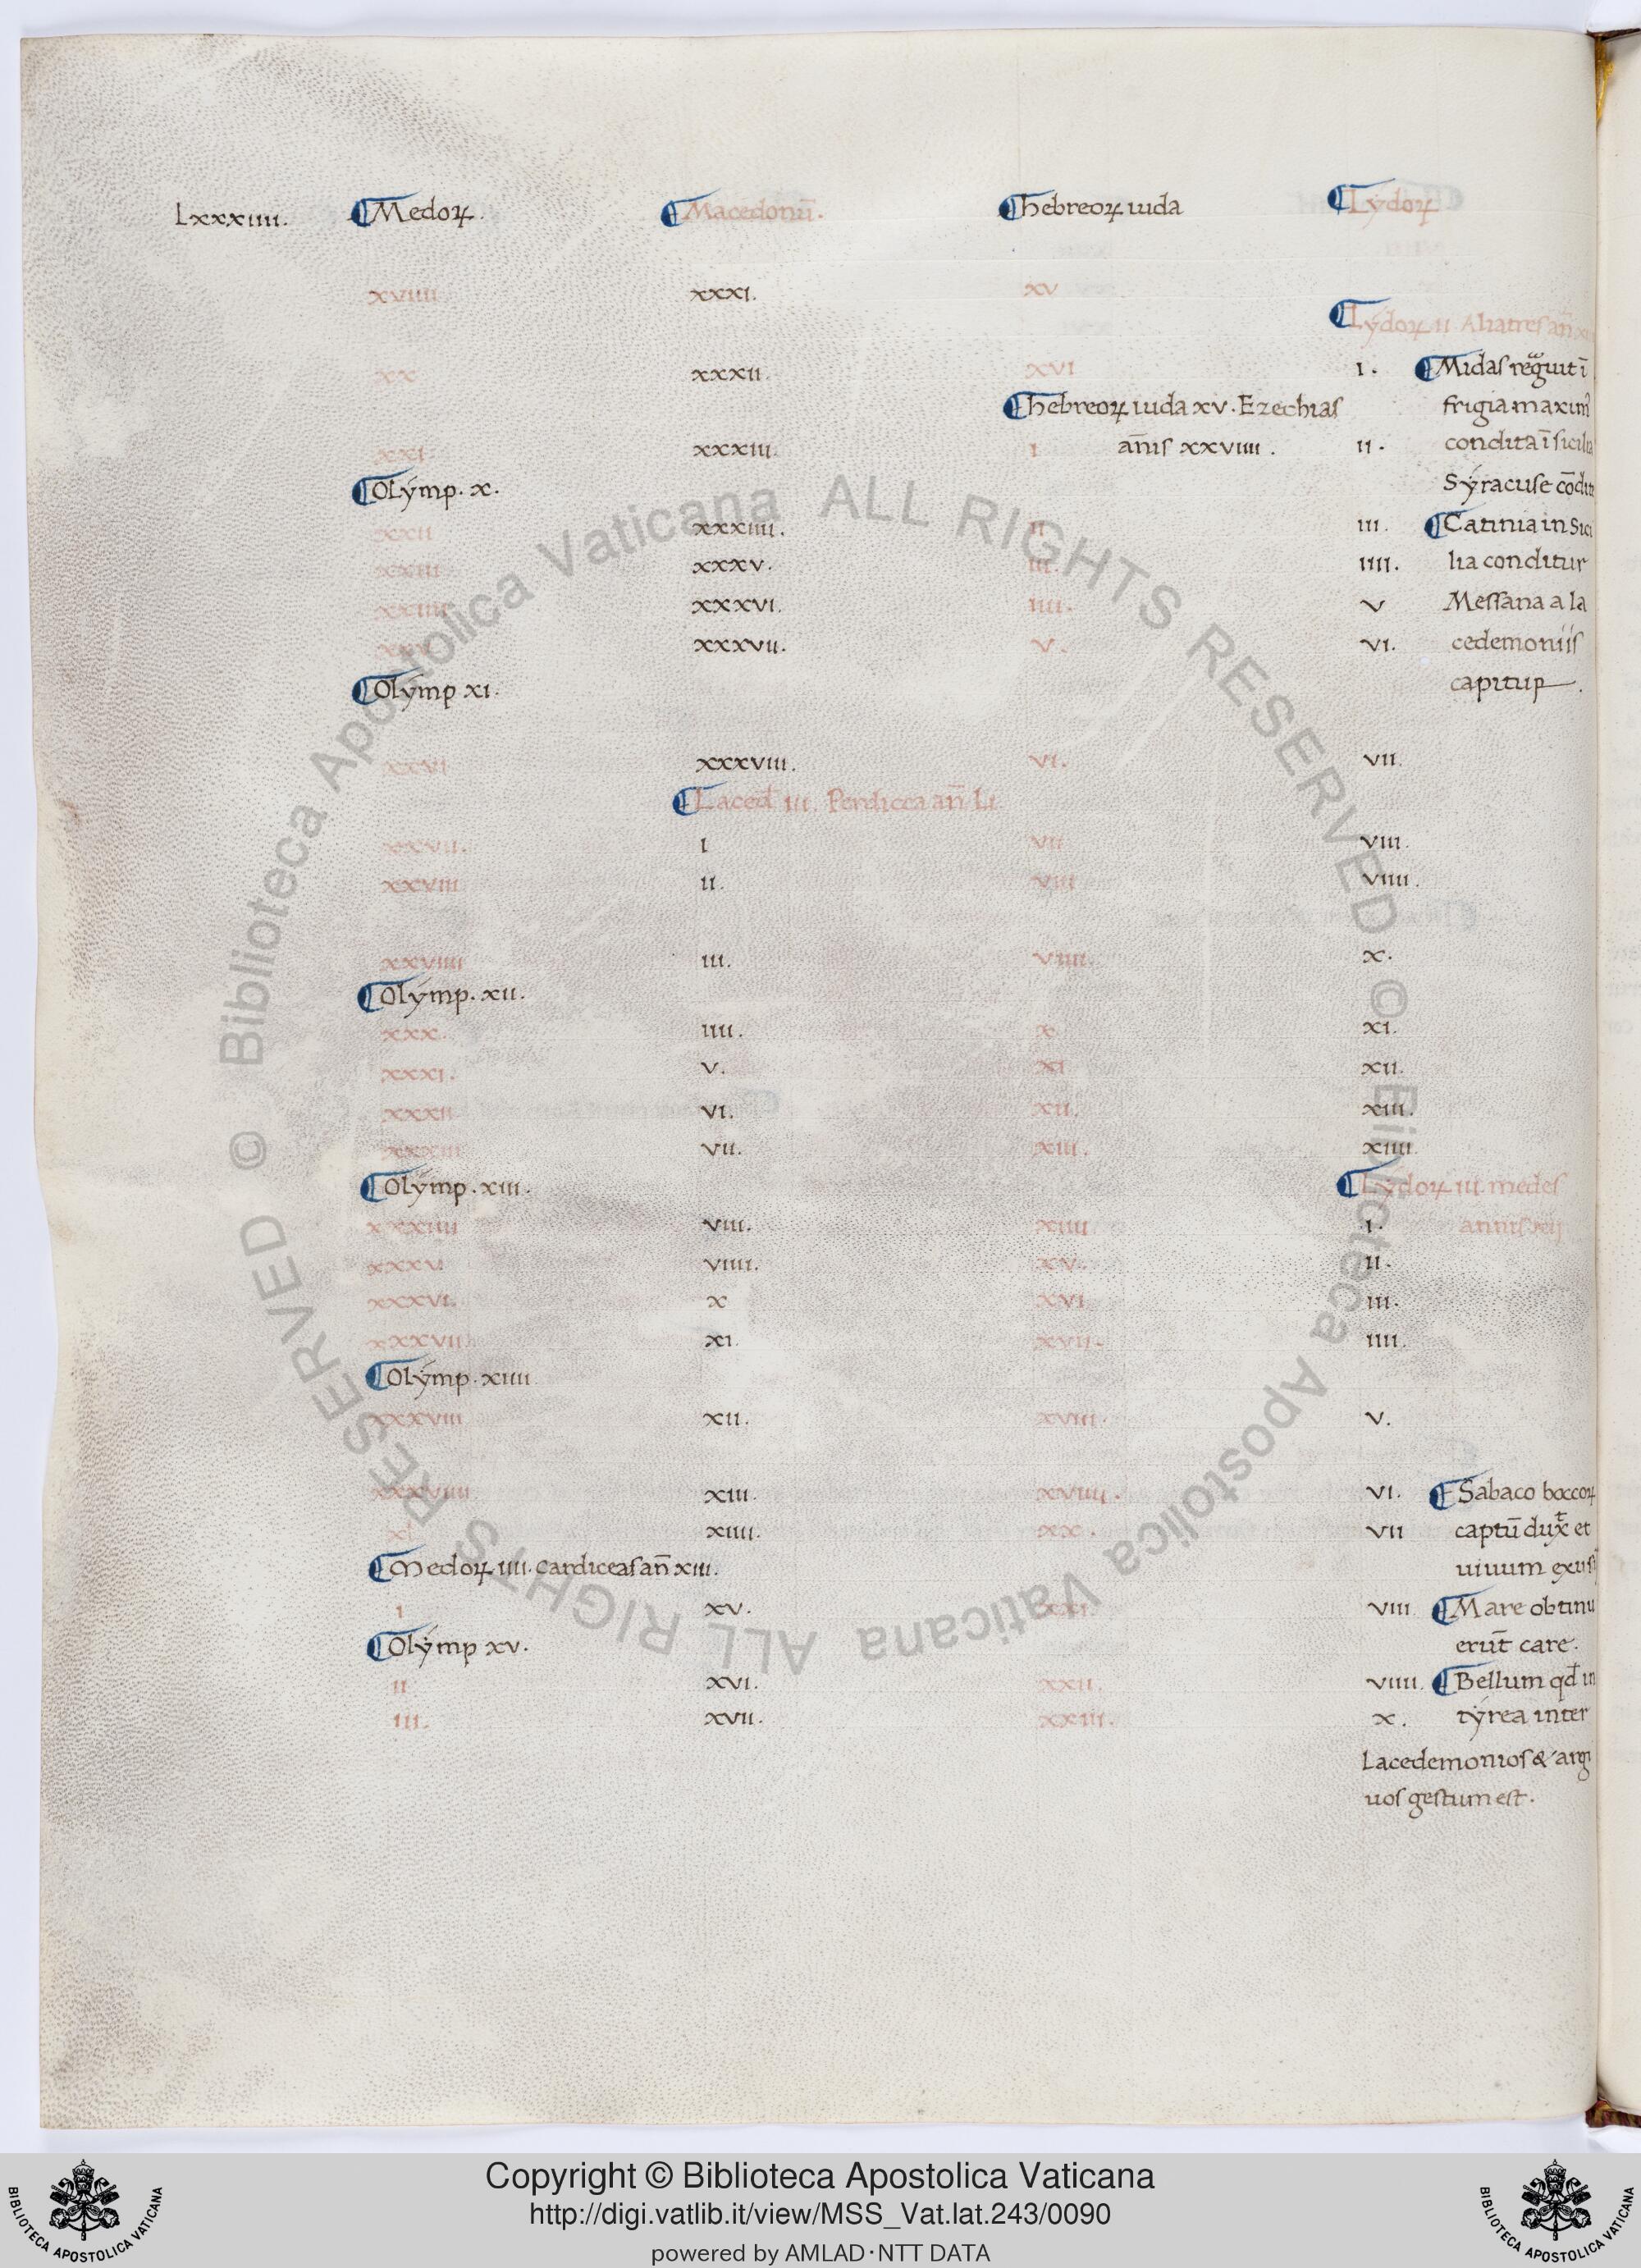 Lxxxiiii. Medoꝝ. Macedonũ. hebreoꝝ iuda Lydoꝝ
xviiii xxxi. xv
Lydoꝝ ii Aliatres añ
xx xxxii. xvi i. Midas regͣuit ĩ
hebreoꝝ iuda xv. Ezechias frigia maxim᷒
xxi xxxiii. i añis xxviiii. ii. condita ĩ sicilia
Olymp. x. Syracuse cõdit
xxii xxxiiii. ii iii. Catinia in Sici
xxiii xxxv. iii. iiii. lia conditur
xxiiii xxxvi. iiii. v Messana a la
xxv xxxvii. v. vi. cedemoniis
Olymp xi. capitur.
xxvi xxxviii. vi. vii.
Laced iii. Perdicca añ Li
xxvii. i vii viii.
xxviii ii. viii viiii.
xxviiii iii. viiii. x.
Olymp. xii.
xxx. iiii. x xi.
xxxi. v. xi xii.
xxxii vi. xii. xiii.
xxxiii vii. xiii. xiiii.
Olymp. xiii. Lydoꝝ iii. medes
xxxiiii viii. xiiii i. annis xij
xxxv. viiii. xv. ii.
xxxvi. x xvi iii.
xxxvii xi. xvii. iiii.
Olymp. xiiii
xxxviii xii. xviii. v.
xxxviiii xiii. xviiii. vi. Sabaco boccoꝝ
xl xiiii. xx. vii captũ dux̃ et
Medoꝝ iiii. cardiceas añ xiii. uiuum exus
i xv. xxi. viii Mare obtinu
Olymp xv. erũt care.
ii xvi. xxii. viiii. Bellum qđ in
iii. xvii. xxiii. x. tyrea inter
Lacedemonios & argi
uos gestum est.
© Biblioteca Apostolica Vaticana ALL RIGHTS RESERVED © Biblioteca Apostolica Vaticana ALL RIGHTS RESERVED
Copyright © Biblioteca Apostolica Vaticana
http://digi.vatlib.it/view/MSS_Vat.lat.243/0090
powered by AMLAD·NTT DATA
BIBLIOTECA APOSTOLICA VATICANA
BIBLIOTECA APOSTOLICA VATICANA